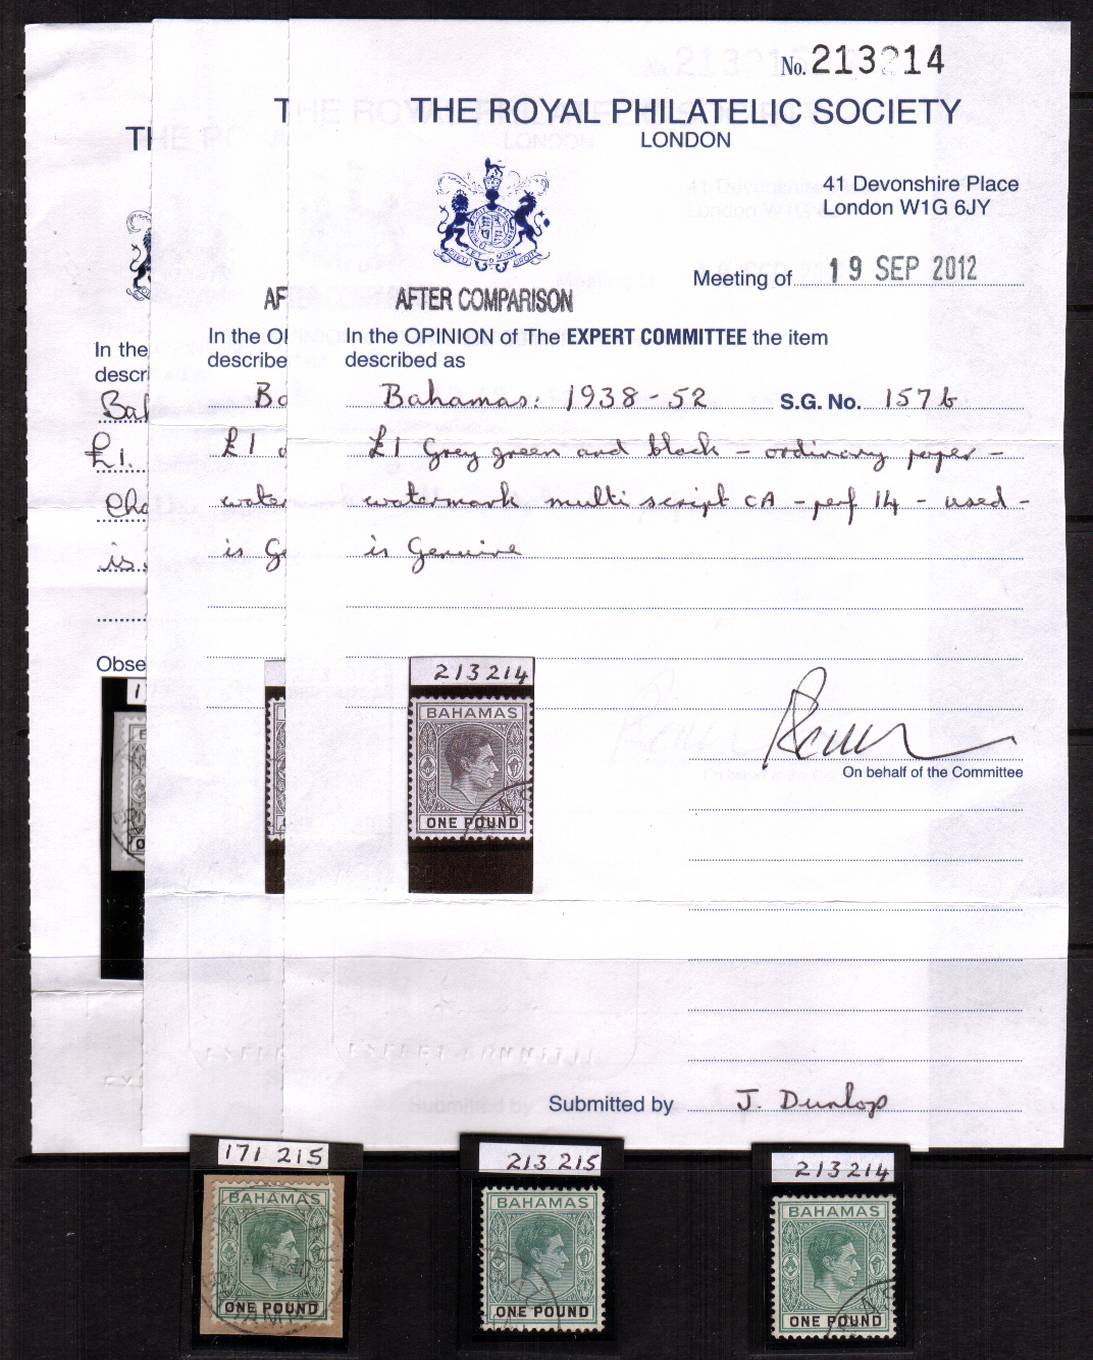 No. 213214
THE ROYAL PHILATELIC SOCIETY
LONDON
41 Devonshire Place
London W1G 6JY
Meeting of 19 SEP 2012
AFTER COMPARISON
In the OPINION of The EXPERT COMMITTEE the item
described as
Bahamas: 1938-52 S.G. No. 157b
£1 Grey green and black - ordinary paper -
watermark multi script CA - perf 14 - used -
is Genuine
213214
BAHAMAS
ONE POUND
On behalf of the Committee
EXPERT COMMITTEE
Submitted by J. Dunlop
TH
In the
descri
Bah
£1.
Cha
is
Obse
T
AF
In the OP
describe
Ba
£1
water
is Ge
171 215
BAHAMAS
ONE POUND
213 215
BAHAMAS
ONE POUND
213214
BAHAMAS
ONE POUND